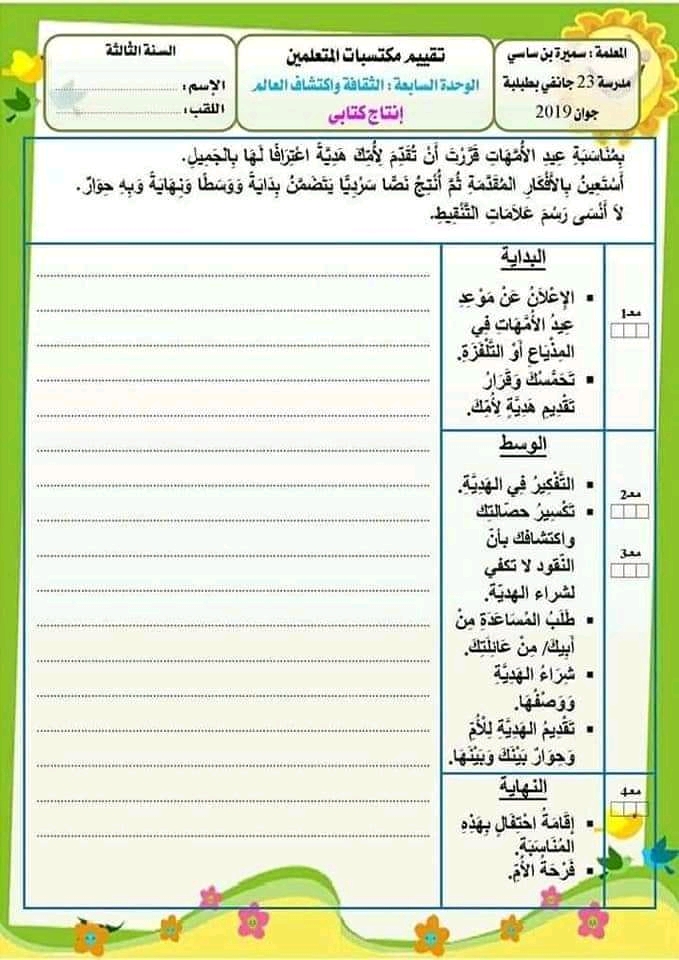 المعلمة : سميرة بن ساسي
مدرسة 23 جانفي بطبلبة
جوان 2019
تقييم مكتسبات المتعلمين
الوحدة السابعة : الثقافة واكتشاف العالم
إنتاج كتابي
السنة الثالثة
الإسم :
اللقب :
بِمُنَاسَبَةِ عِيدِ الأُمَّهَاتِ قَرَّرْتَ أَنْ تُقَدِّمَ لِأُمِّكَ هَدِيَّةً اعْتِرَافًا لَهَا بِالْجَمِيلِ.
أَسْتَعِينُ بِالأَفْكَارِ المُقَدَّمَةِ ثُمَّ أُنْتِجُ نَصًّا سَرْدِيًّا يَتَضَمَّنُ بِدَايَةً وَوَسَطًا وَنِهَايَةً وَبِهِ حِوَارٌ.
لاَ أَنْسَى رَسْمَ عَلاَمَاتِ التَّنْقِيطِ.
مع1
البداية
▪ الإِعْلاَنُ عَنْ مَوْعِدِ
عِيدُ الأُمَّهَاتِ فِي
المِذْيَاعِ أَوْ التَّلْفَزَةِ.
▪ تَحَمُّسُكَ وَقَرَارُ
تَقْدِيمِ هَدِيَّةٍ لِأُمِّكَ.
مع2
مع3
الوسط
▪ التَّفْكِيرُ فِي الهَدِيَّةِ.
▪ تَكْسِيرُ حصّالتِك
واكتشافك بأنّ
النّقود لا تكفي
لشراء الهديّة.
▪ طَلَبُ المُسَاعَدَةِ مِنْ
أَبِيكَ/ مِنْ عَائِلَتِكَ.
▪ شِرَاءُ الهَدِيَّةِ
وَوَصْفُهَا.
▪ تَقْدِيمُ الهَدِيَّةِ لِلْأُمِّ
وَحِوَارٌ بَيْنَكَ وَبَيْنَهَا.
مع4
النهاية
▪ إقَامَةُ احْتِفَالٍ بِهَذِهِ
المُنَاسَبَةِ.
▪ فَرْحَةُ الأُمِّ.